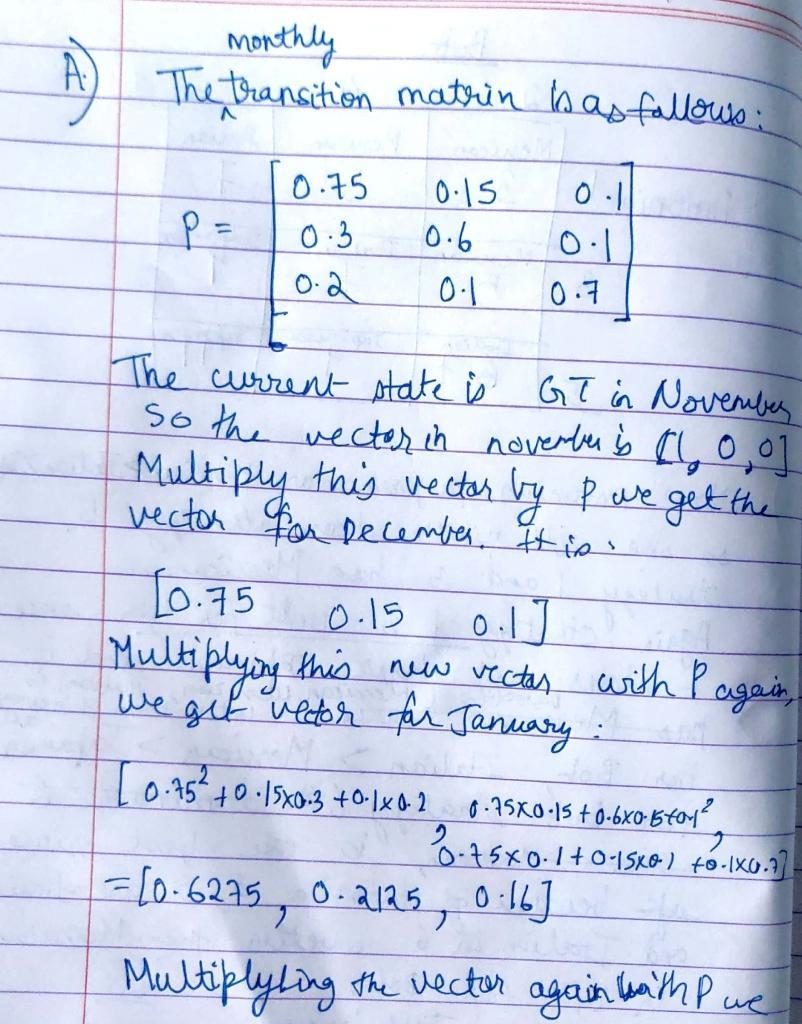 monthly
A.) The transition matrin is as follows:
0.75 0.15 0.1
P = 0.3 0.6 0.1
0.2 0.1 0.7
The current state is GT in November
So the vector in november is [1, 0, 0]
Multiply this vector by P we get the
vector for December. It is:
[0.75 0.15 0.1]
Multiplying this new vector with P again,
we get vector for January:
[0.75² + 0.15x0.3 + 0.1x0.2 , 0.75x0.15 + 0.6x0.15+0.1² ,
0.75x0.1 + 0.15x0.1 + 0.1x0.7]
= [0.6275, 0.2125, 0.16]
Multiplyling the vector again with P we